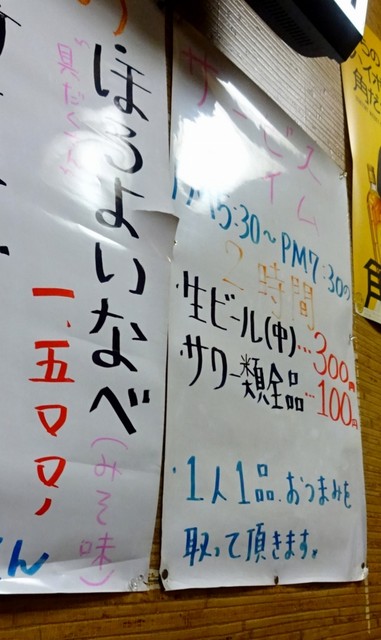 サービス
タイム
PM5:30～PM7:30の
2時間
・生ビール(中)…300円
・サワー類全品…100円
・1人1品、おつまみを
取って頂きます。
ほろよいなべ
具だくさん
(みそ味)
一、五〇〇、
角